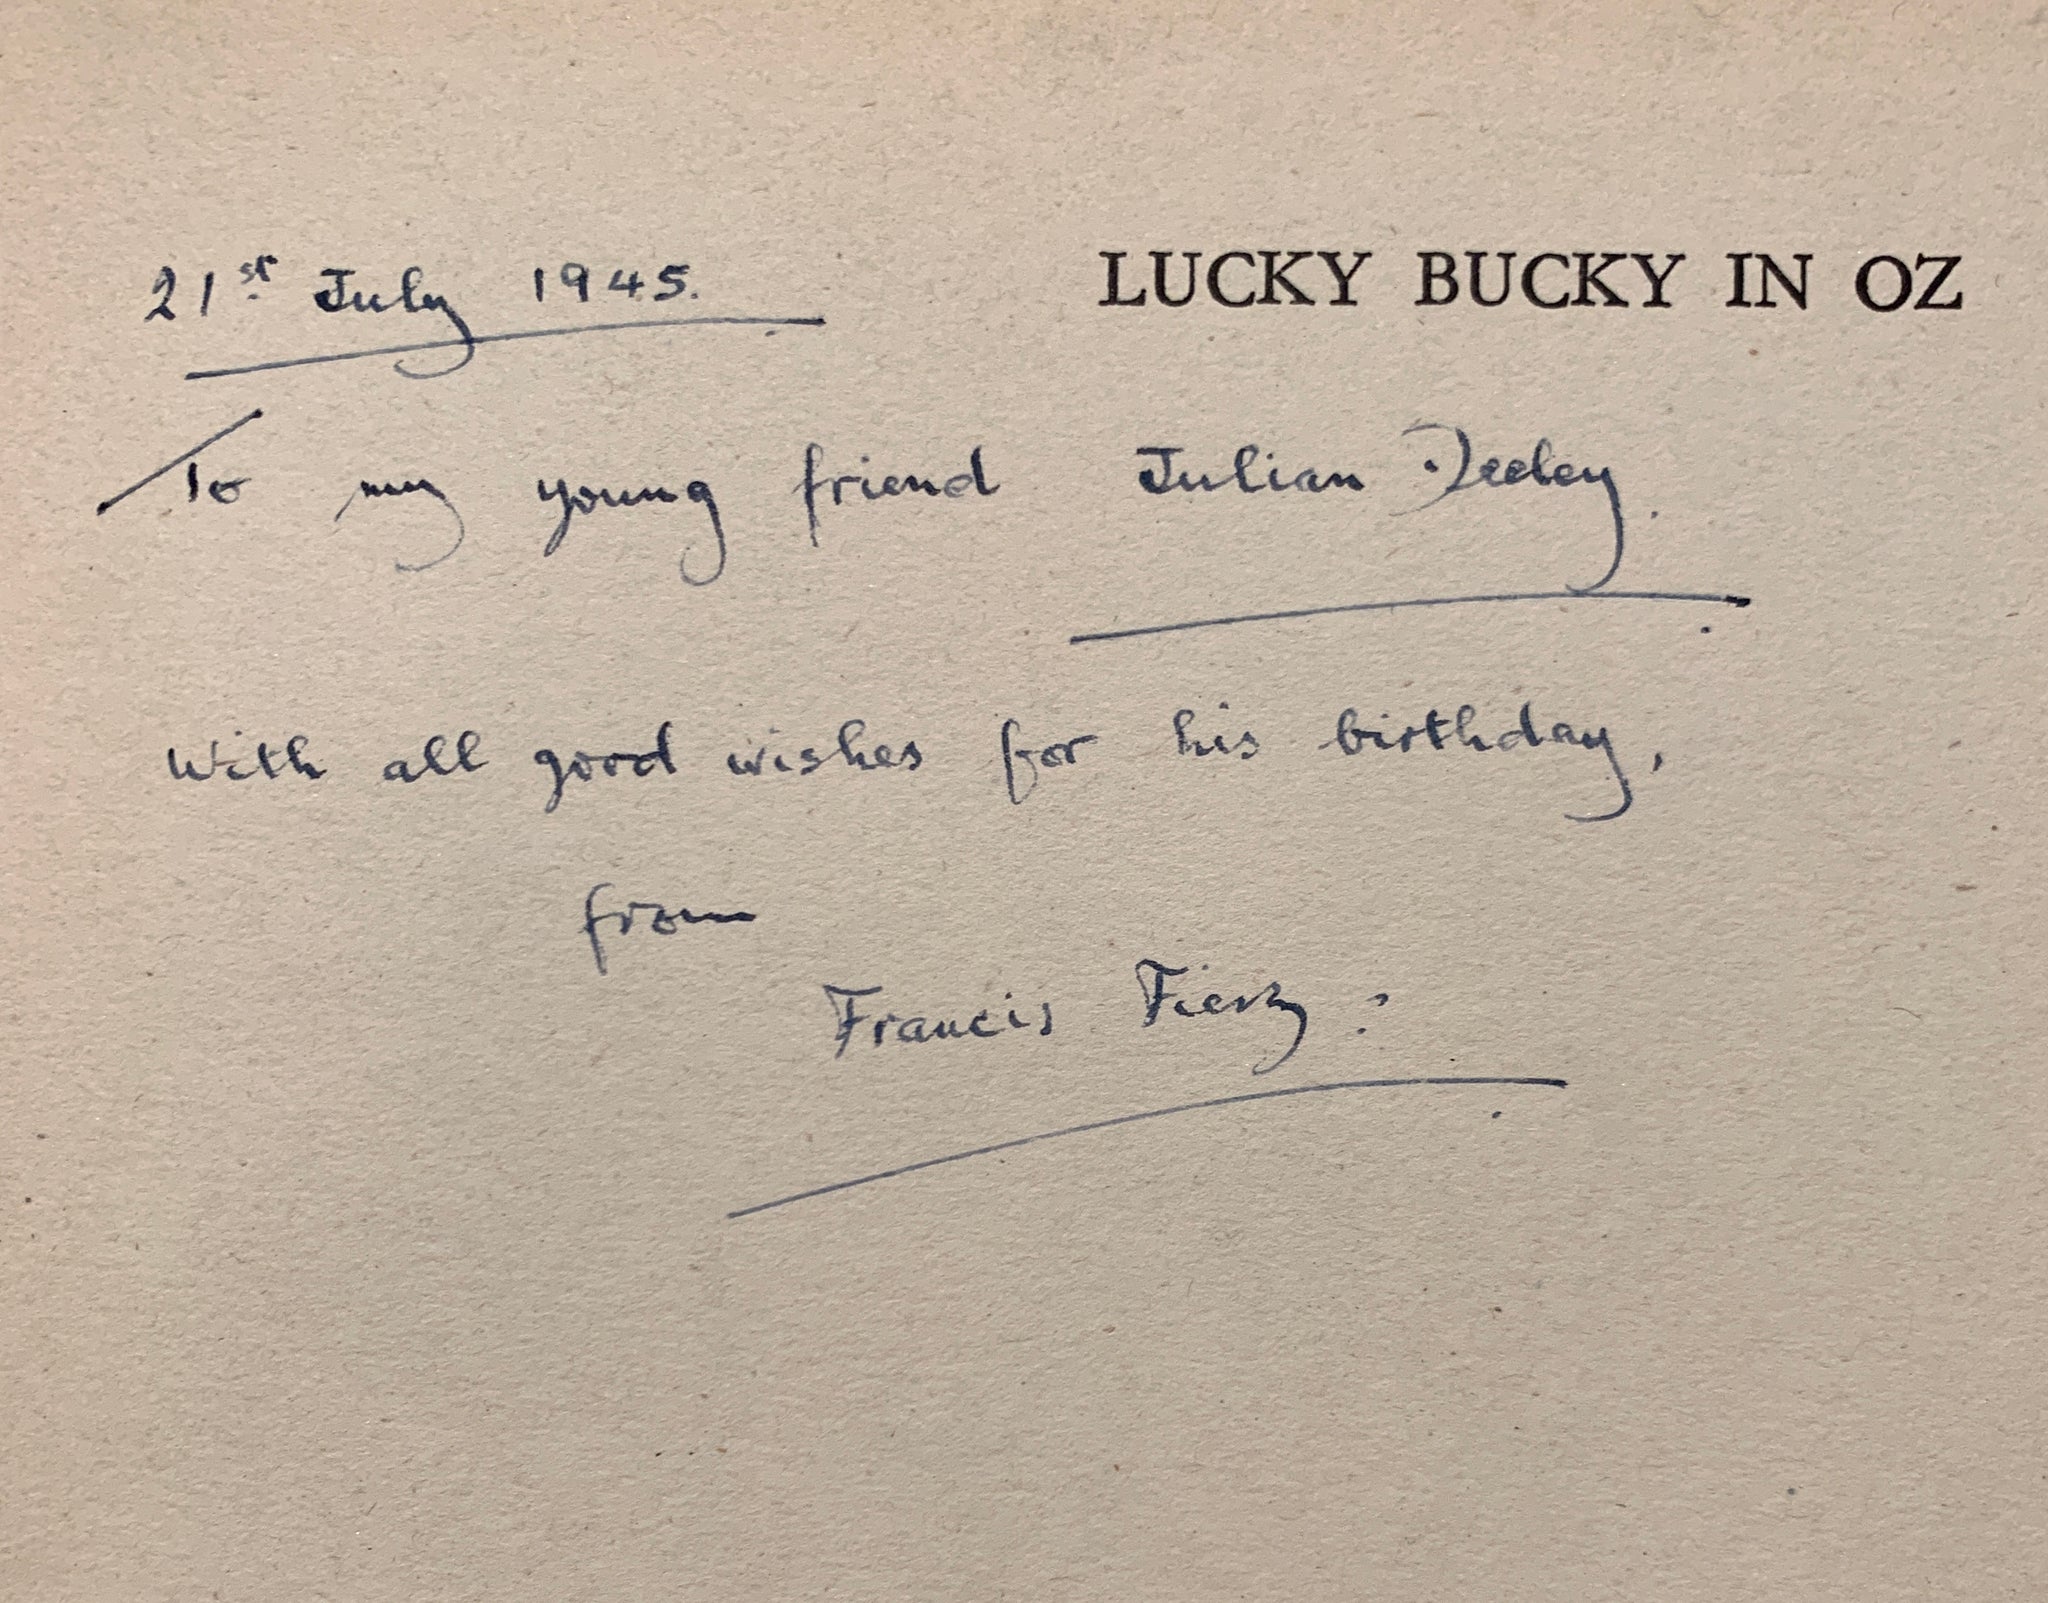 LUCKY BUCKY IN OZ
21st July 1945.
To my young friend Julian Deeley.
With all good wishes for his birthday,
from
Francis Fierz.